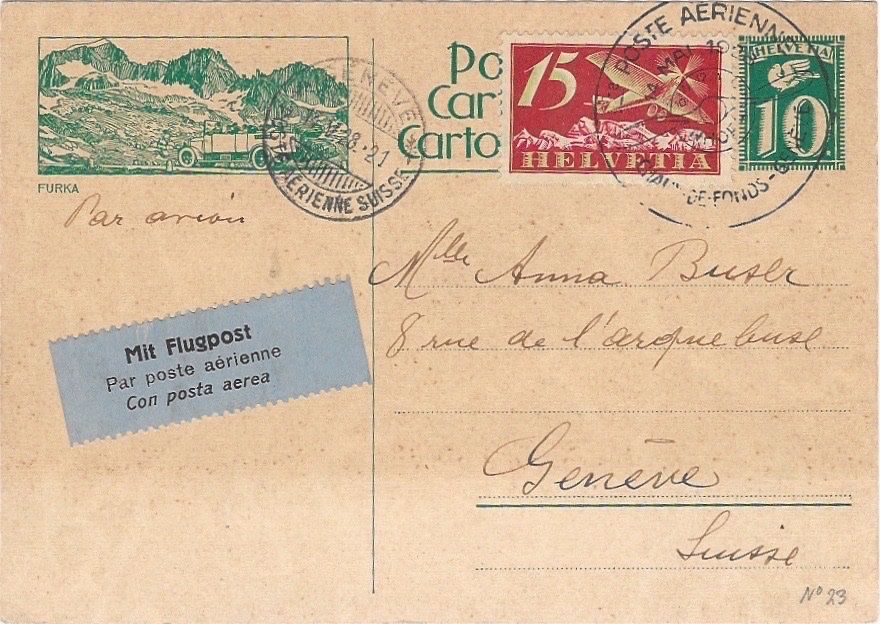 FURKA
Par avion
GENÈVE
POSTE AÉRIENNE SUISSE
Po
Car
Carto
15
HELVETIA
POSTE AÉRIENNE
MAI
DE-FONDS-GENÈVE
HELVETIA
10
Mlle Anna Buser
8 rue de l'arquebuse
Mit Flugpost
Par poste aérienne
Con posta aerea
Genève
Suisse
No 23